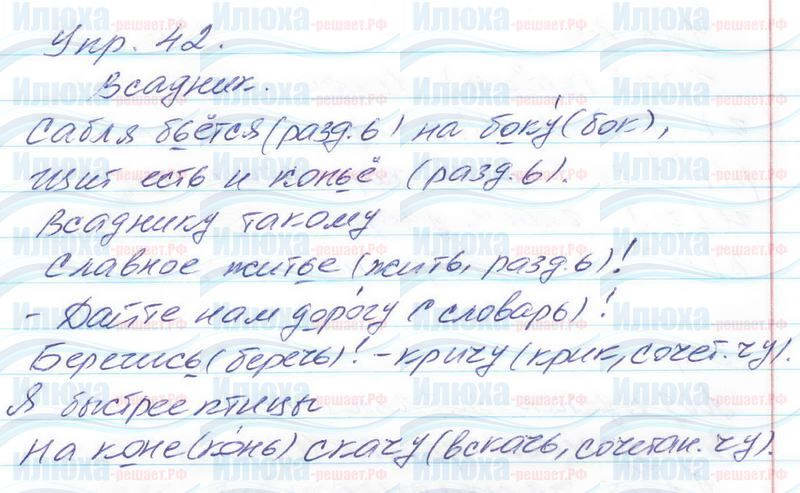 Упр. 42.
Всадник.
Сабля бьётся (разд. ь) на боку́ (бок),
Щит есть и копьё (разд. ь).
Всаднику такому
Славное житье (жить, разд. ь)!
- Дайте нам доро́гу (словарь)!
Берегись (беречь)! - кричу (крик, сочет. чу).
Я быстрее птицы
На коне (ко́нь) скачу (вскачь, сочетан. чу).